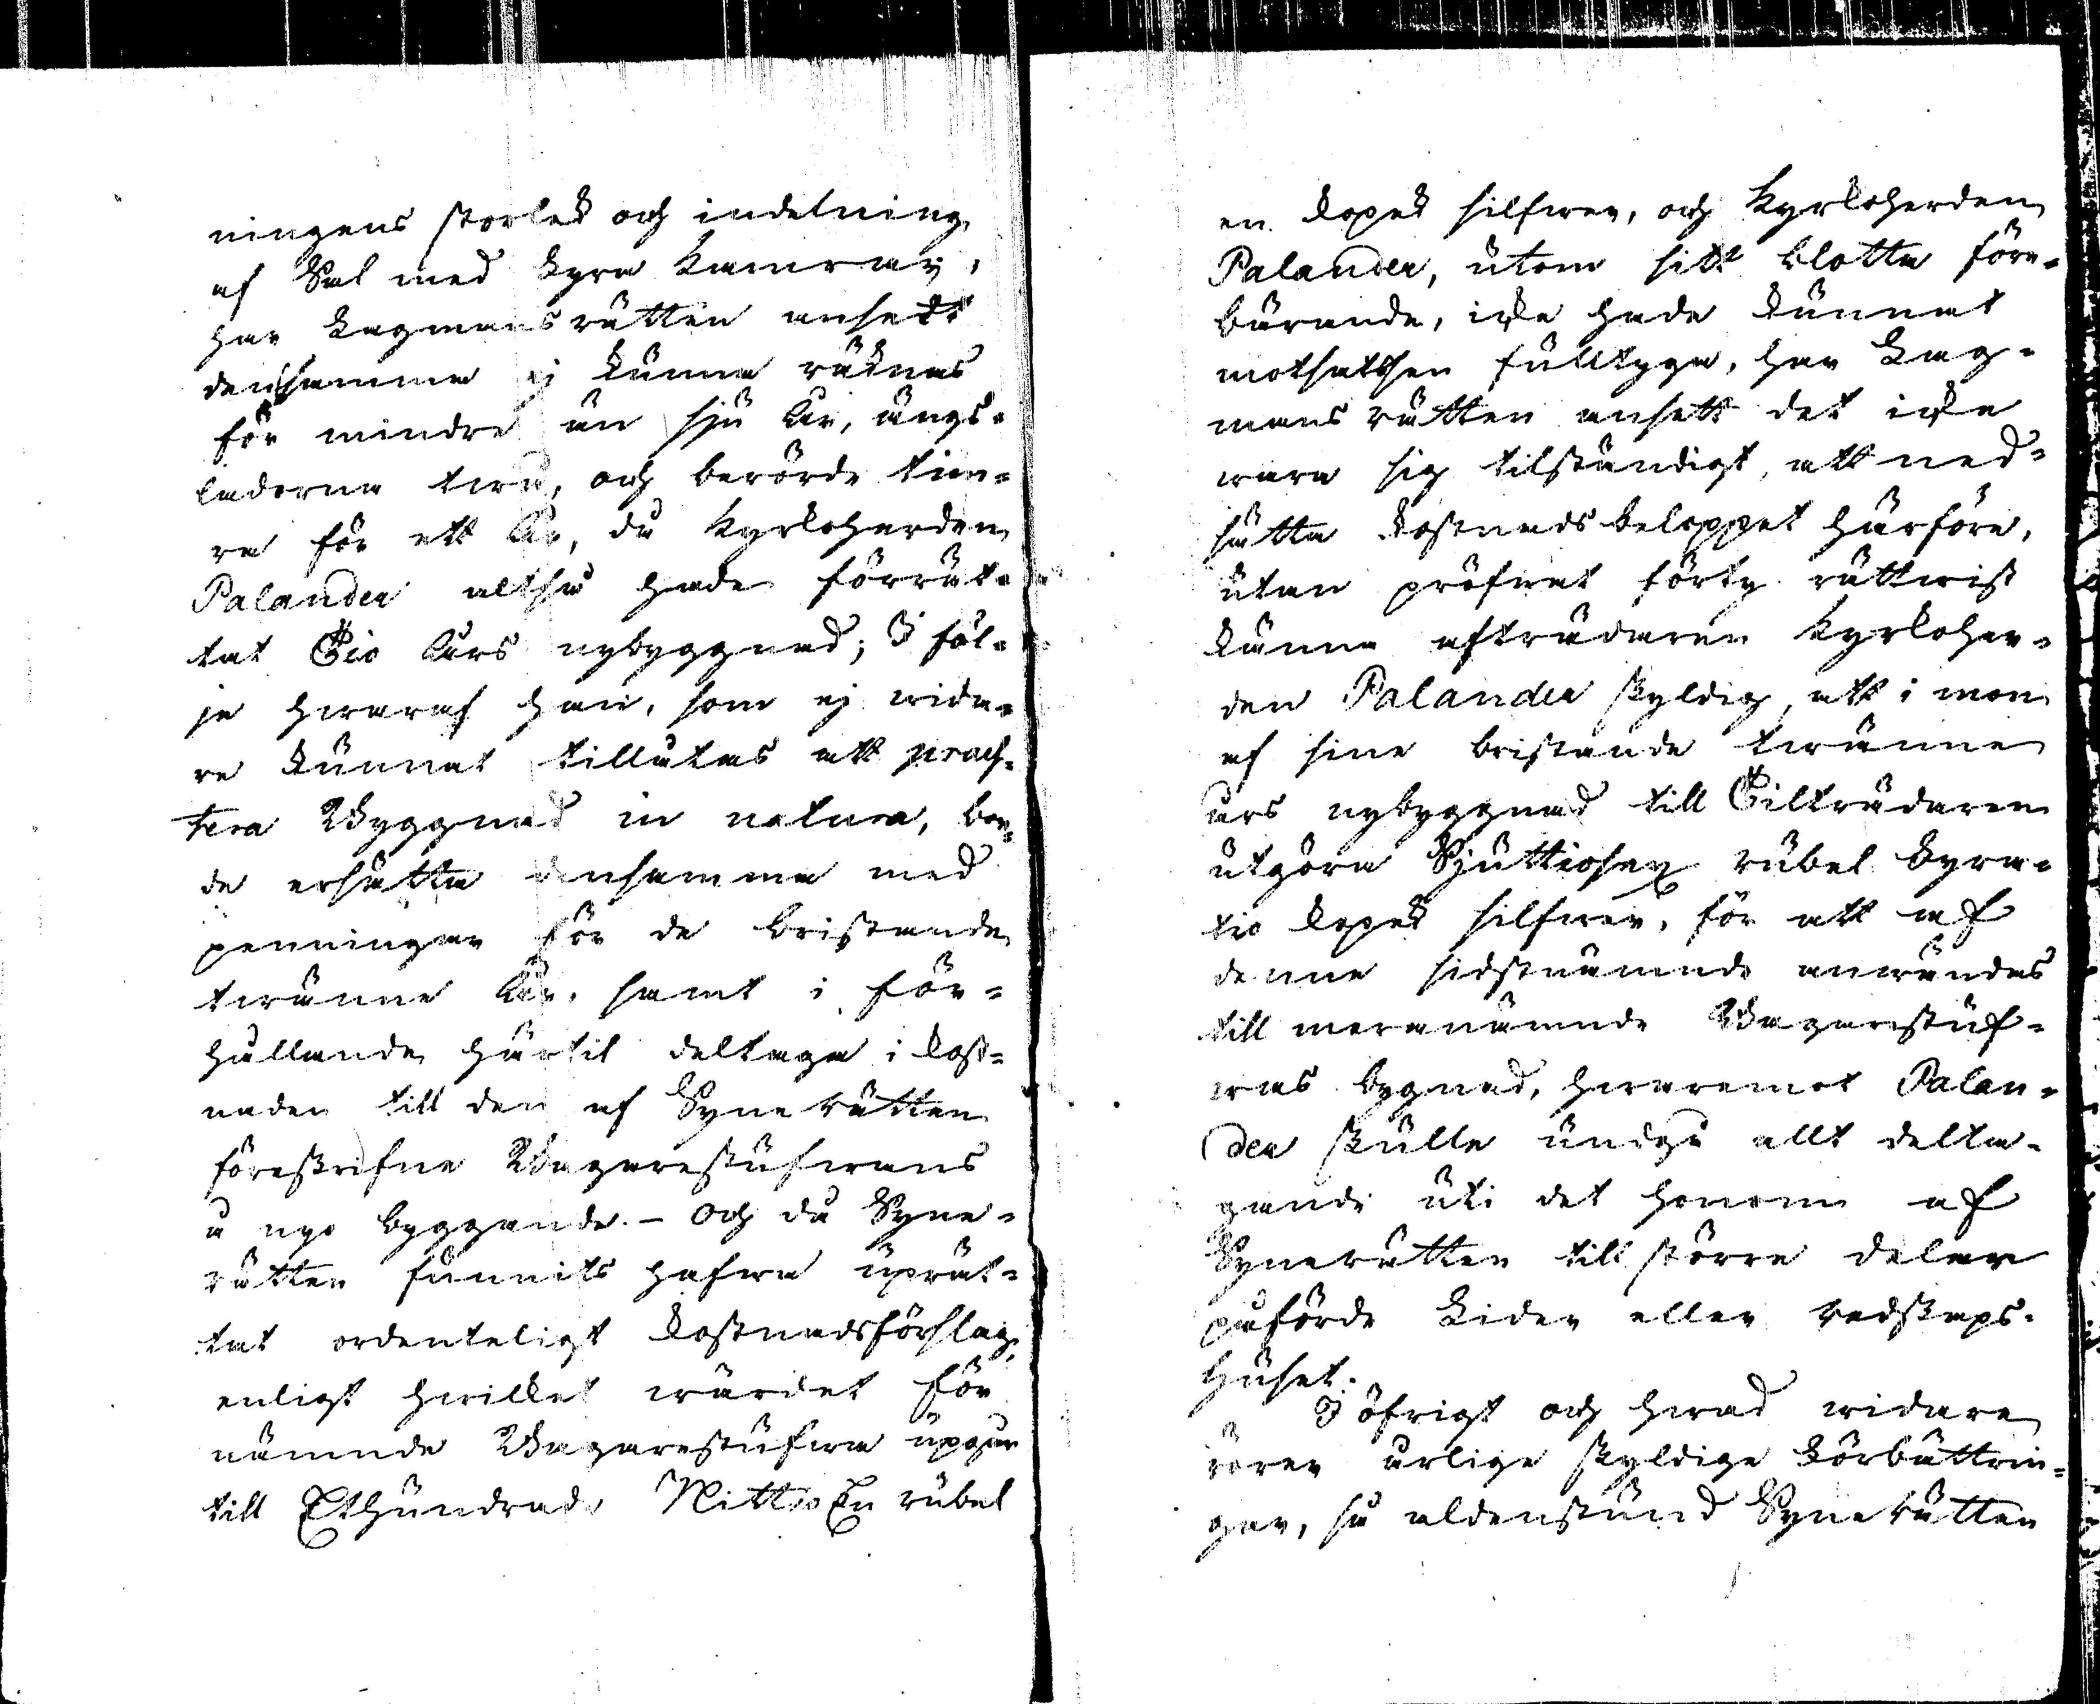 ningens storlek och indelning,
af Sal med fyra Kamrar,
har Lagmansrätten ansett
densamma ej kunna räknas
för mindre än sju Åer, ängs-
ladorne twå, och berörde
ra för ett År, då Kyrkoherden
Palander altså hade förrät-
tat Tio Års nybyggnad; I föl-
je hwaraf han, som ej wida-
re kunnat tillåtas att præs-
tera Åbyggnad in natura, bor-
de ersätta densamma med
penningar för de bristande
twänne År, samt i för-
hållande härtil deltaga i kost-
naden till den af Syne Rätten
föreskrifne Wagarestufwans
å nyo byggande. – Och då Syne-
rätten funnits hafwa uprät-
tat ordenteligt kostnadsförslag,
enligt hwilket wärdet för
nämnde Wagarestufwa upgår
till Etthundrade Nittio En rubel
en kopek silfwer, och Kyrkoherden
Palander, utom sitt blotta före-
bärande, icke hade kunnat
motsattsen fulltyga, har Lag-
mansrätten ansett det icke
wara sig tilständigt, att ned-
sätta kostnadsbeloppet härföre,
utan pröfwat förty rättwist
känna afträdaren Kyrkoher-
den Palander skyldig, att i mon
af sine bristande twänne
års nybyggnad till Tilträdaren
utgöra Sjuttiosex rubel fyra-
tio kopek silfwer, för att af
denne sidstnämnde anwändas
till meranämnde Wagarestuf-
was bygnad, hwaremot Palan-
der skulle undgå allt delta-
gande uti det honom af
Synerätten till större delen
påförde Lider eller redskaps-
huset.
I öfrigt och hwad widare
rörer årlige skyldige förbättrin-
gar, så aldenstund Syne Rätten